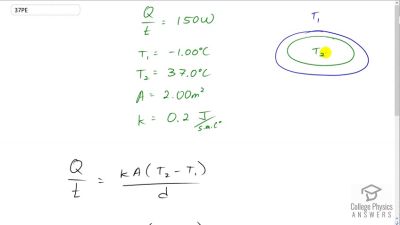 37PE
Q/t = 150W
T₁ = -1.00°C
T₂ = 37.0°C
A = 2.00m²
k = 0.2 J/s·m·C°
T₁
T₂
Q/t = kA(T₂ - T₁)/d
College Physics
ANSWERS